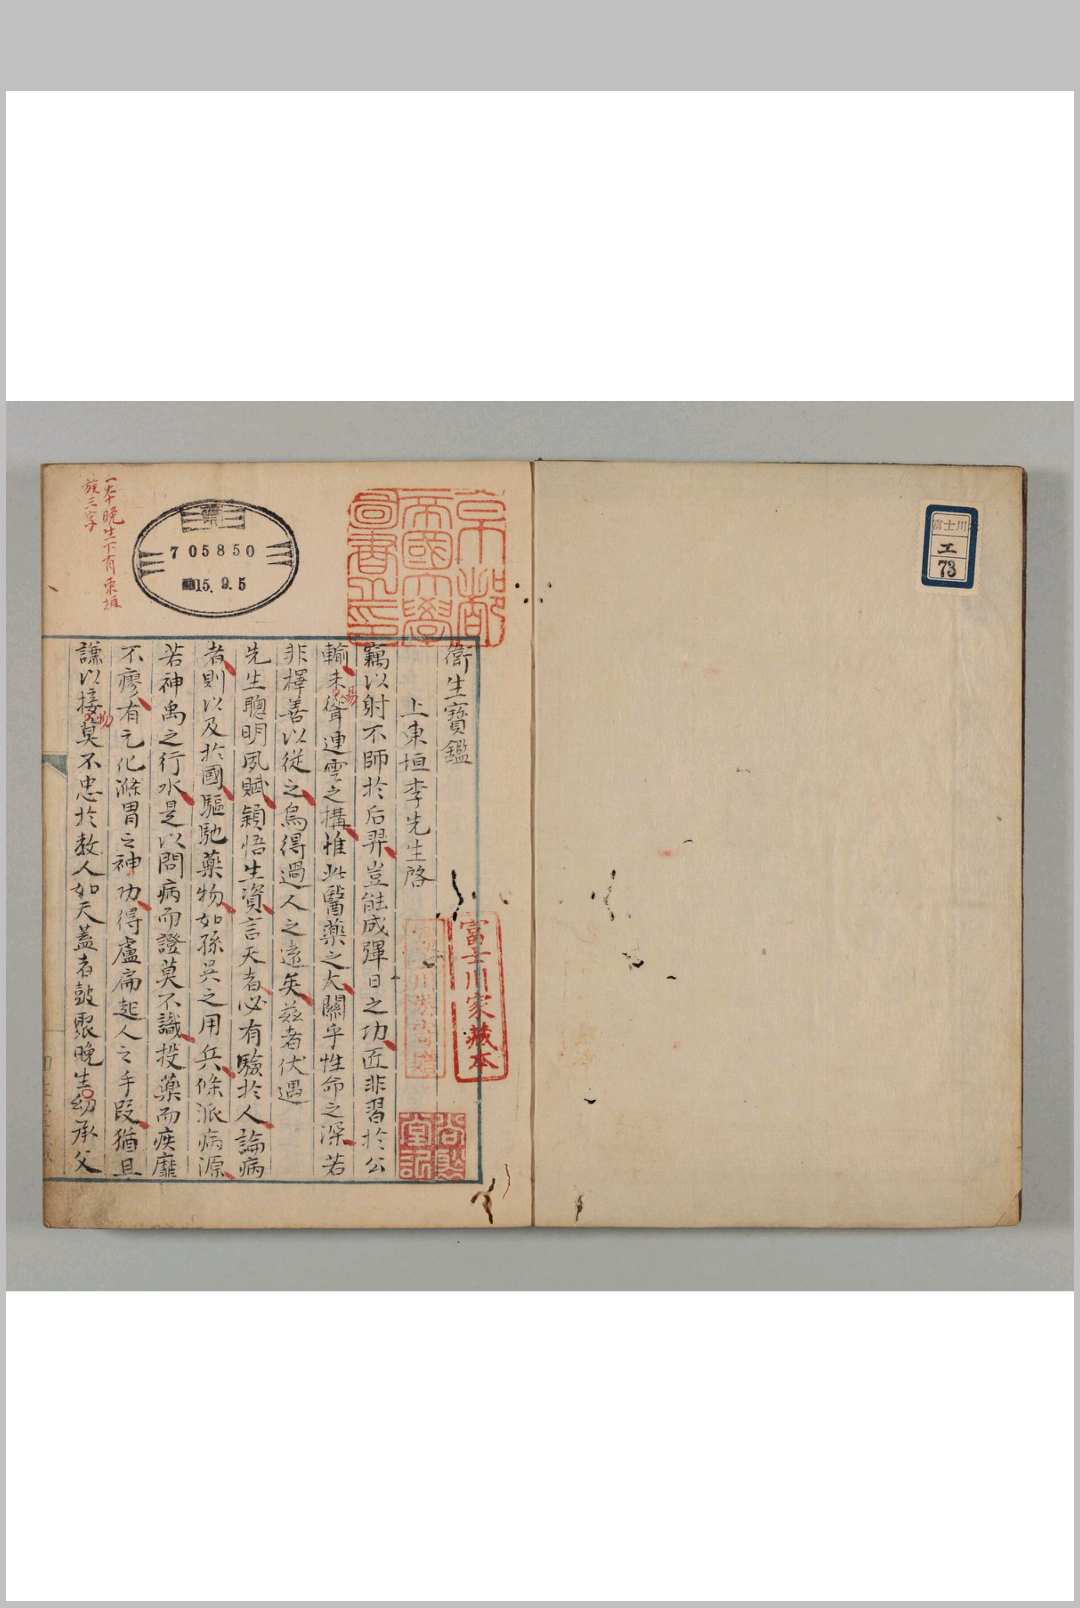 富士川本
エ
73
京都
帝國大學
圖書之印
705850
15.9.5
衛生寶鑑
上東垣李先生啓
竊以射不師於后羿豈能成彈日之功匠非習於公
輸未聳連雲之搆惟此醫藥之大關乎性命之深若
易
非擇善以從之烏得過人之遠矣茲者伏遇
先生聰明夙賦穎悟生資言天者必有驗於人論病
者則以及於國驅馳藥物如孫吳之用兵條派病源
若神禹之行水是以問病而證莫不識投藥而疾靡
不廖有元化滌胃之神功得盧扁起人之手段猶且
謙以接莫不忠於教人如天蓋者皷聚晚生幼承父
物
晚生下有東垣
富士川家藏本